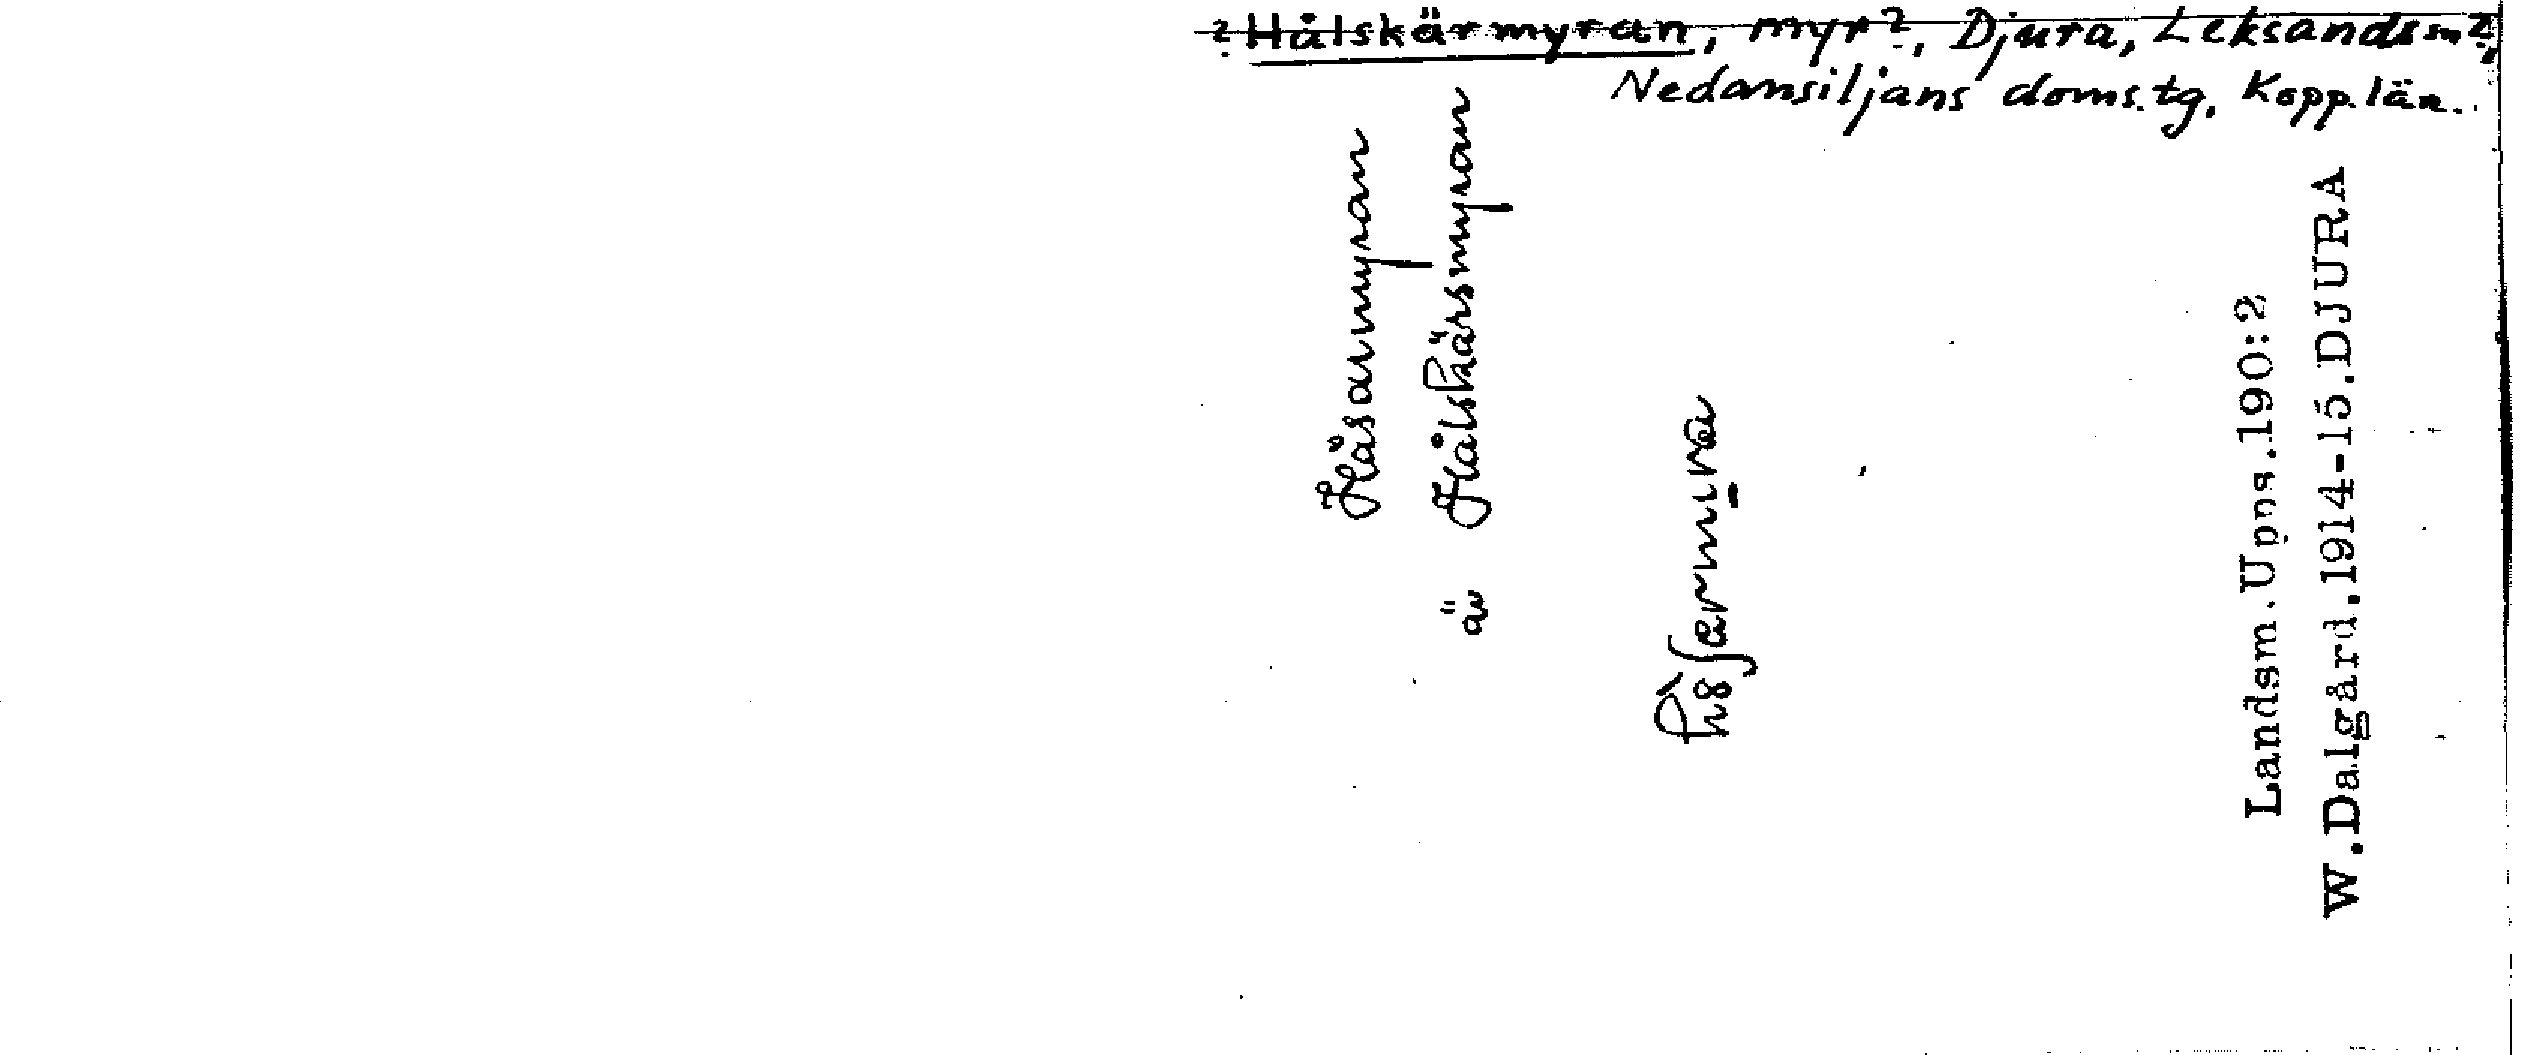 ? Hålskärmyran, myr?, Djura, Leksands sn?,
Nedansiljans doms.tg. Kopp. län.
Håsarmyran
ä Hålskärsmyran
Landsm.Upps.190:2
W.Dalgård.1914-15.DJURA